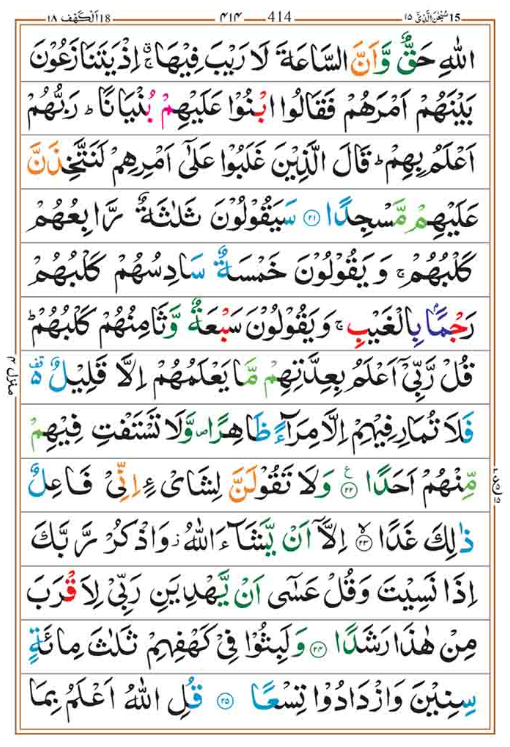 سُبْحٰنَ الَّذِیْۤ ١٥ 15 ٤١٤ 414 الْكَهْف ١٨ 18
اللّٰهِ حَقٌّ وَّاَنَّ السَّاعَةَ لَا رَیْبَ فِیْهَا ۚ اِذْ یَتَنَازَعُوْنَ
بَیْنَهُمْ اَمْرَهُمْ فَقَالُوا ابْنُوْا عَلَیْهِمْ بُنْیَانًا ؕ رَبُّهُمْ
اَعْلَمُ بِهِمْ ؕ قَالَ الَّذِیْنَ غَلَبُوْا عَلٰۤی اَمْرِهِمْ لَنَتَّخِذَنَّ
عَلَیْهِمْ مَّسْجِدًا ۝٢١ سَیَقُوْلُوْنَ ثَلٰثَةٌ رَّابِعُهُمْ
كَلْبُهُمْ ۚ وَیَقُوْلُوْنَ خَمْسَةٌ سَادِسُهُمْ كَلْبُهُمْ
رَجْمًۢا بِالْغَیْبِ ۚ وَیَقُوْلُوْنَ سَبْعَةٌ وَّثَامِنُهُمْ كَلْبُهُمْ ؕ
قُلْ رَّبِّیْۤ اَعْلَمُ بِعِدَّتِهِمْ مَّا یَعْلَمُهُمْ اِلَّا قَلِیْلٌ ۫۬
فَلَا تُمَارِ فِیْهِمْ اِلَّا مِرَآءً ظَاهِرًا ۪ وَّلَا تَسْتَفْتِ فِیْهِمْ
مِّنْهُمْ اَحَدًا ۝٢٢ وَلَا تَقُوْلَنَّ لِشَایْءٍ اِنِّیْ فَاعِلٌ
ذٰلِكَ غَدًا ۝٢٣ اِلَّاۤ اَنْ یَّشَآءَ اللّٰهُ ؗ وَاذْكُرْ رَّبَّكَ
اِذَا نَسِیْتَ وَقُلْ عَسٰۤی اَنْ یَّهْدِیَنِ رَبِّیْ لِاَقْرَبَ
مِنْ هٰذَا رَشَدًا ۝٢٤ وَلَبِثُوْا فِیْ كَهْفِهِمْ ثَلٰثَ مِائَةٍ
سِنِیْنَ وَازْدَادُوْا تِسْعًا ۝٢٥ قُلِ اللّٰهُ اَعْلَمُ بِمَا
منزل ٤